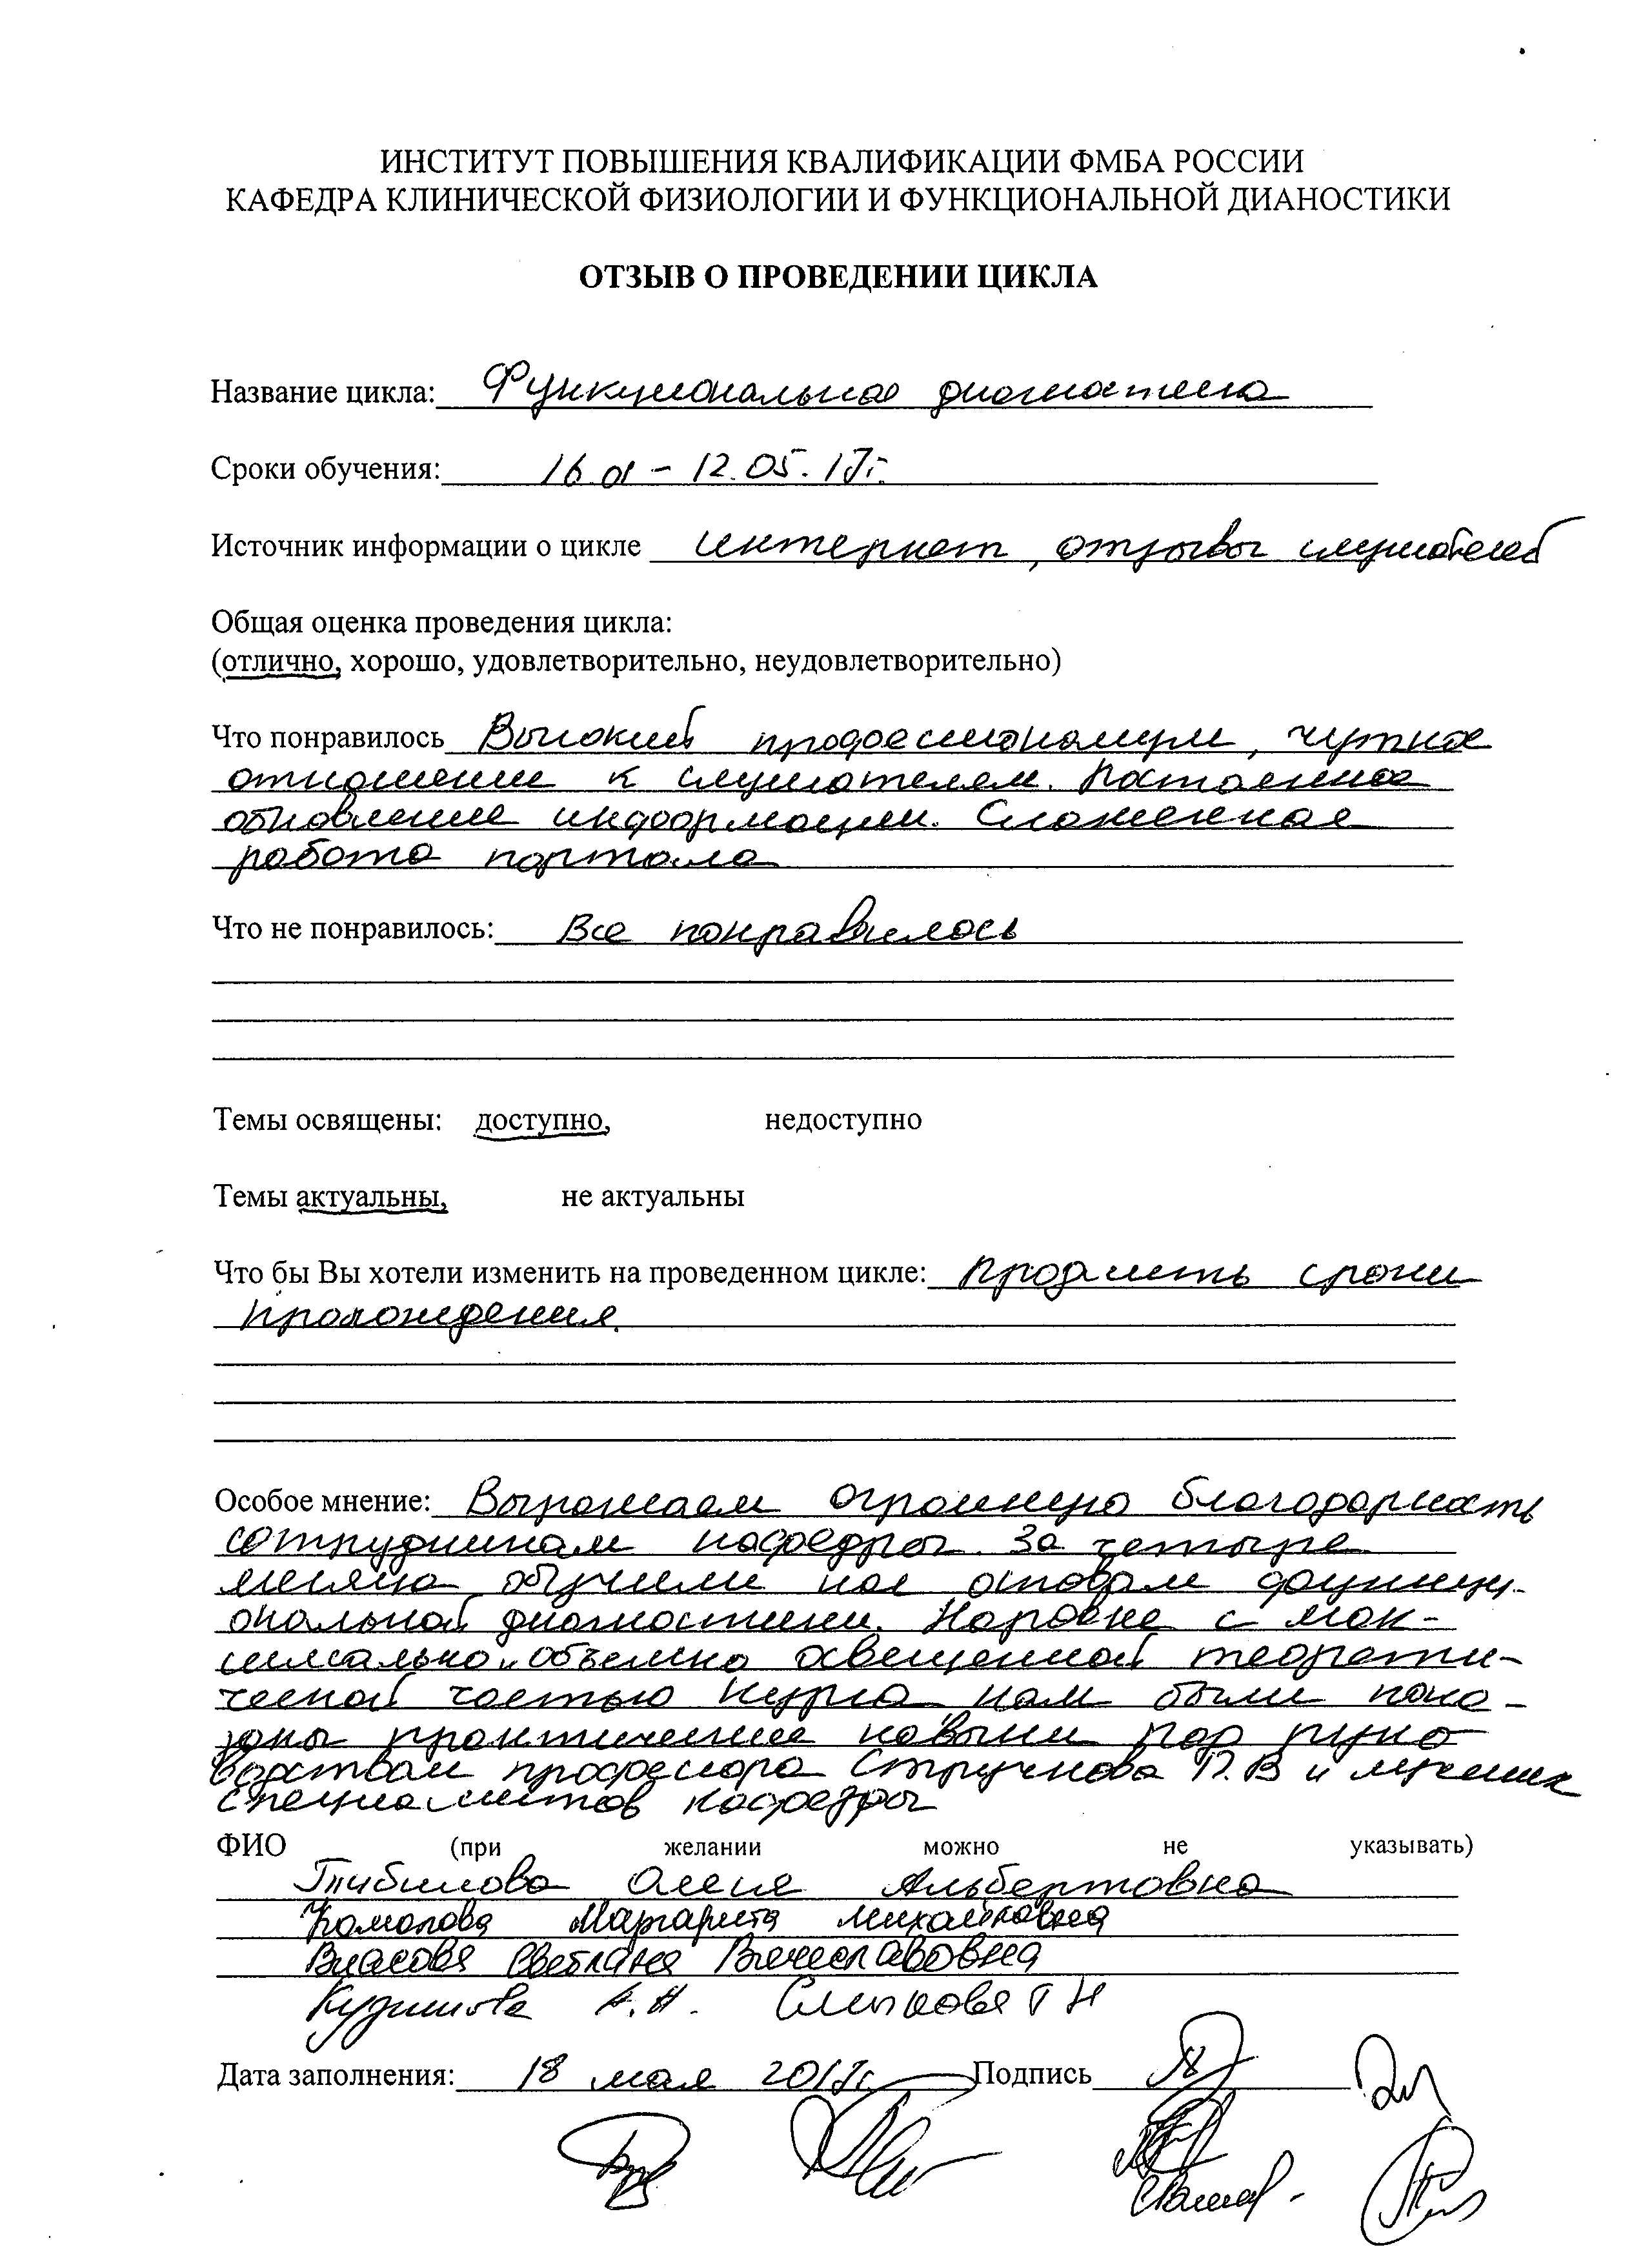 ИНСТИТУТ ПОВЫШЕНИЯ КВАЛИФИКАЦИИ ФМБА РОССИИ
КАФЕДРА КЛИНИЧЕСКОЙ ФИЗИОЛОГИИ И ФУНКЦИОНАЛЬНОЙ ДИАНОСТИКИ
ОТЗЫВ О ПРОВЕДЕНИИ ЦИКЛА
Название цикла: Функциональная диагностика
Сроки обучения: 16.01 – 12.05.17г.
Источник информации о цикле интернет, отзывы слушателей
Общая оценка проведения цикла:
(отлично, хорошо, удовлетворительно, неудовлетворительно)
Что понравилось Высокий професионализм, чуткое
отношение к слушателям. Постоянное
обновление информации. Слаженная
работа портала
Что не понравилось: Все понравилось
Темы освящены: доступно, недоступно
Темы актуальны, не актуальны
Что бы Вы хотели изменить на проведенном цикле: Продлить сроки
прохождения.
Особое мнение: Выражаем огромную благодарность
сотрудникам кафедры. За четыре
месяца обучили нас основам функци-
ональной диагностики. Наровне с мак-
симально объемно освещенной теорети-
ческой частью курса нам были пока-
заны практические навыки под руко
водством професора Стручкова П.В и лучших
специалистов кафедры
ФИО (при желании можно не указывать)
Тибилова Олеся Альбертовна
Комолова Маргарита Михайловна
Власова Светлана Вячеславовна
А.Н. Т Н
Дата заполнения: 18 мая 2017г. Подпись